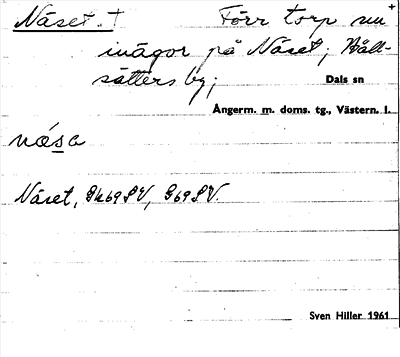 Näset. † Förr torp nu
inägor på Näset; Häll-
sätters by;
Dals sn
Ångerm. m. doms. tg., Västern. l.
næsa
Näset, Gk69SV, G69SV.
Sven Hiller 1961